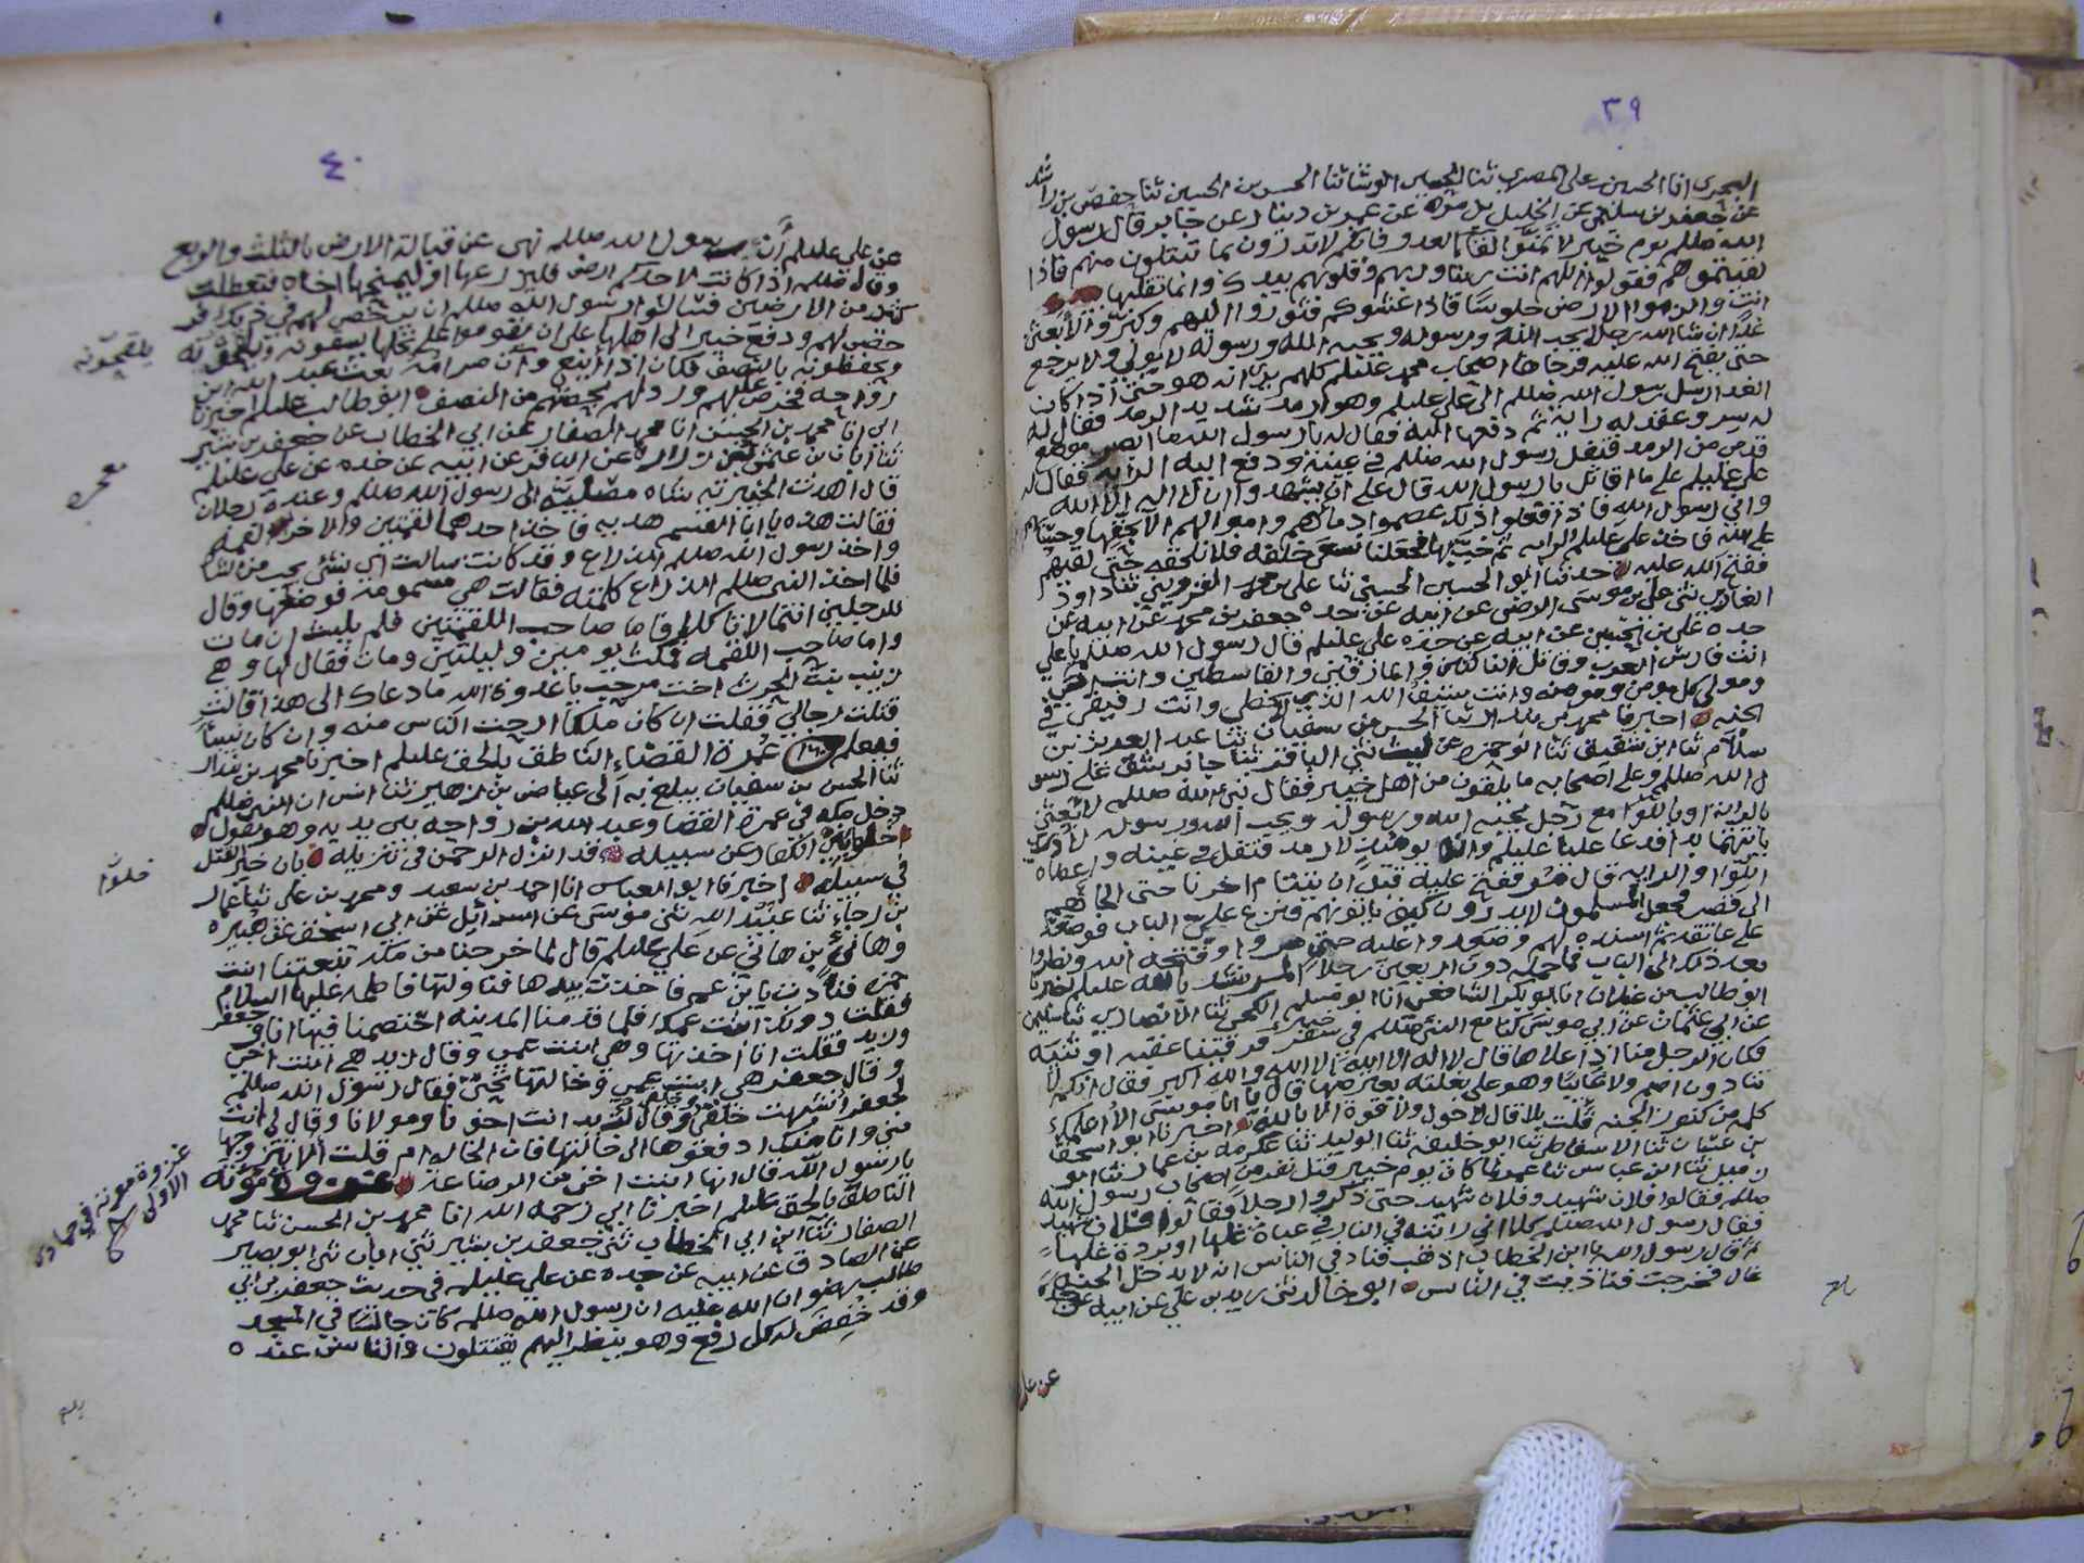 ٣٩
انا الحسين بن على المصرى ثنا الحسين ثنا الحسن بن الحسين ثنا حفص بن راشد
عن جعفر بن سليمان عن الخليل بن مره عن عمرو بن دينار عن جابر قال رسول
الله صللم يوم خيبر لا تمنوا لقا العدو فانكم لا تدرون بما تبتلون منهم فاذا
لقيتموهم فقولوا اللهم انت ربنا وربهم وقلوبهم بيدك وانما تقلبها
انت والزموا الارض جلوسا فاذا غشوكم فثوروا اليهم وكبروا لابعثن
غدا ان شا الله رجلا يحب الله ورسوله ويحبه الله ورسوله لا يولى ولا يرجع
حتى يفتح الله عليه فرجاها اصحاب محمد عليلم كلهم يرى انه هو حتى اذا كان
الغد ارسل رسول الله صللم الى على عليلم وهو ارمد شديد الرمد فقال له
سر وعقد له راية ثم دفعها اليه فقال له يا رسول الله ما ابصر موضع
قدمى من الرمد فتفل رسول الله صللم في عينيه ودفع اليه الراية فقال له
على عليلم على ما اقاتل يا رسول الله قال على ان يشهدوا ان لا اله الا الله
واني رسول الله فاذا فعلوا ذلك عصموا دماهم واموالهم الا بحقها وحسابهم
على الله فاخذ على عليلم الراية ثم خب بها فجعلنا نسعى خلفه فلا نلحقه حتى لقيهم
ففتح الله عليه حدثنا ابو الحسين الحسني ثنا على بن محمد القزويني ثنا داود
الغازي ثنى على بن موسى الرضى عن ابيه عن جده جعفر بن محمد عن ابيه عن
جده على بن الحسين عن ابيه عن جده على عليلم قال رسول الله صللم يا علي
انت فارس العرب وقاتل الناكثين والمارقين والقاسطين وانت اخي
ومولى كل مومن ومومنه وانت سيف الله الذي لا يخطي وانت رفيقي في
الجنه اخبرنا محمد بن بندار ثنا الحسن بن سفيان ثنا عبد العزيز بن
سلام ثنا ابن شقيق ثنا ابو حمزه عن ليث ثنى الباقر ثنا جابر يشق على رسو
ل الله صللم وعلى اصحابه ما يلقون من اهل خيبر فقال نبي الله صللم لابعثن
بالراية او باللوا مع رجل يحبه الله ورسوله ويحب الله ورسوله لا ادري
بايتهما بدا فدعا عليا عليلم وانه يومئذ لارمد فتفل في عينيه واعطاه
اللوا او الراية قال ففتح عليه قبل ان يتتام اخرنا حتى الجاهم
الى قصر فجعل المسلمون لا يدرون كيف ياتونهم فنزع على الباب فوضعه
على عاتقه ثم اسنده لهم وصعدوا عليه حتى مروا وفتحه الله ونظروا
بعد ذلك الى الباب فما حمله دون اربعين رجلا اخبرنا
ابو طالب بن غيلان انا ابو بكر الشافعي انا ابو مسلم الكجي ثنا الانصاري ثنا سليمن
عن ابي عثمان عن ابي موسى كنا مع النبي صللم في سفر فرقينا عقبه او ثنيه
فكان الرجل منا اذا علاها قال لا اله الا الله والله اكبر فقال انكم لا
تنادون اصم ولا غايبا وهو على بغلته يعترضها قال يا ابا موسى الا اعلمك
كلمه من كنوز الجنه قلت بلا قال لا حول ولا قوة الا بالله اخبرنا ابو اسحق
ثنا الاسفاطي ثنا ابو خليفه ثنا ابو الوليد ثنا عكرمه بن عمار ثنا ابو
زميل ثنا ابن عباس ثنا عمر لما كان يوم خيبر قتل نفر من اصحاب رسول الله
صللم فقالوا فلان شهيد وفلان شهيد حتى ذكروا رجلا فقالوا فلان شهيد
فقال رسول الله صللم كلا اني رايته في النار في عباة غلها او بردة غلها
ثم قال رسول الله يا ابن الخطاب اذهب فناد في الناس انه لا يدخل الجنه
قال فخرجت فناديت في الناس ابو خالد ثنى زيد بن علي عن ابيه عن جده
عن على
٤٠
عن على عليلم ان رسول الله صللم نهى عن قبالة الارض بالثلث والربع
وقال صللم اذا كانت لاحدكم ارض فليزرعها او ليمنحها اخاه فتعطلت
كثير من الارضين فسالوا رسول الله صللم ان يرخص لهم في ذلك فر
خص لهم ودفع خيبر الى اهلها على ان يقوموا على نخلها يسقونه ويلقحونه
ويحفظونه بالنصف فكان اذا اينع وآن صرامه بعث عبد الله بن
رواحه فخرص عليهم ورد لهم بحصتهم من النصف ابو طالب عليلم اخبرنا
ابي انا محمد بن الحسن انا محمد الصفار عن ابي الخطاب عن جعفر بن بشير
ثنا ابان بن عثمن عن زرارة عن الباقر عن ابيه عن جده عن على عليلم
قال اهدت الخيبريه شاه مصليه الى رسول الله صللم وعنده رجلان
فقالت هذه يا ابا القسم هديه فاخذ احدهما لقمتين والاخر لقمه
واخذ رسول الله صللم الذراع وقد كانت سالت اي شئ يحب من الشا
فلما اخذ النبي صللم الذراع كلمته فقالت هي مسمومه فوضعها وقال
للرجلين انتما لا تاكلا فاما صاحب اللقمتين فلم يلبث ان مات
واما صاحب اللقمه فمكث يومين وليلتين ومات فقال لها وهي
زينب بنت الحرث اخت مرحب يا عدوة الله ما دعاك الى هذا قالت
قتلت رجالي فقلت ان كان ملكا ارحت الناس منه وان كان نبيا
عمرة القضاء الناطق بالحق عليلم اخبرنا محمد بن بندار
ثنا الحسن بن سفيان يبلغ به الى عياض بن زهير ثنا انس ان النبي صللم
دخل مكه في عمرة القضا وعبد الله بن رواحه بين يديه وهو يقول
خلوا بني الكفار عن سبيله قد انزل الرحمن في تنزيله بان خير القتل
في سبيله اخبرنا ابو العباس انا احمد بن سعيد ومحمد بن على ثنا عمار
بن رجاء ثنا عبيد الله بن موسى عن اسرائيل عن ابي اسحق عن هبيره
وهانئ بن هاني عن علي عليلم قال لما خرجنا من مكه تبعتنا ابنت
حمزه فنادت يا بن عم فاخذت بيدها فناولتها فاطمه عليها السلام
فقلت دونك ابنت عمك فلما قدمنا المدينه اختصمنا فيها انا و جعفر
وزيد فقلت انا اخذتها وهي ابنت عمي وقال زيد هي ابنت اخي
وقال جعفر هي ابنت عمي وخالتها تحتي فقال رسول الله صللم
لجعفر اشبهت خلقي وخلقي وقال لزيد انت اخونا ومولانا وقال لي انت
مني وانا منك ادفعوها الى خالتها فان الخاله ام قلت الا تتزوجها
يا رسول الله قال انها ابنت اخي من الرضاعه غزوة مؤته
الناطق بالحق عليلم اخبرنا ابي رحمه الله انا محمد بن الحسن ثنا محمد
الصفار ثنا ابن ابي الخطاب ثنى جعفر بن بشير ثنى ابان ثنى ابو بصير
عن الصادق عن ابيه عن جده عن علي عليلم في حديث جعفر بن ابي
طالب رضوان الله عليه ان رسول الله صللم كان جالسا في المسجد
وقد خفض له كل رفع وهو ينظر اليهم يقتتلون والناس عنده
يلقحونه
خلوا
غزوة موته في جمادى
الاولى